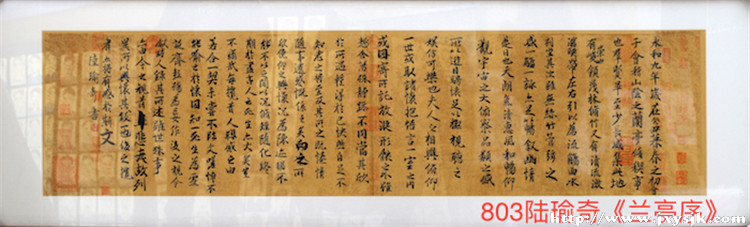 永和九年歲在癸丑暮春之初會
于會稽山陰之蘭亭脩禊事
也羣賢畢至少長咸集此地
有崇山峻領茂林脩竹又有清流激
湍暎帶左右引以為流觴曲水
列坐其次雖無絲竹管弦之
盛一觴一詠亦足以暢敘幽情
是日也天朗氣清惠風和暢仰
觀宇宙之大俯察品類之盛
所以遊目騁懷足以極視聽之
娛信可樂也夫人之相與俯仰
一世或取諸懷抱悟言一室之內
或因寄所託放浪形骸之外雖
趣舍萬殊靜躁不同當其欣
於所遇暫得於己快然自足不
知老之將至及其所之既惓情
隨事遷感慨係之矣向之所
欣俛仰之閒以為陳迹猶不
能不以之興懷況脩短隨化終
期於盡古人云死生亦大矣豈
不痛哉每攬昔人興感之由
若合一契未嘗不臨文嗟悼不
能喻之於懷固知一死生為虛
誕齊彭殤為妄作後之視今
亦由今之視昔悲夫故列
敘時人錄其所述雖世殊事
異所以興懷其致一也後之攬
者亦將有感於斯文
陸瑜奇書
803陆瑜奇《兰亭序》
http://www.jxysjk.com